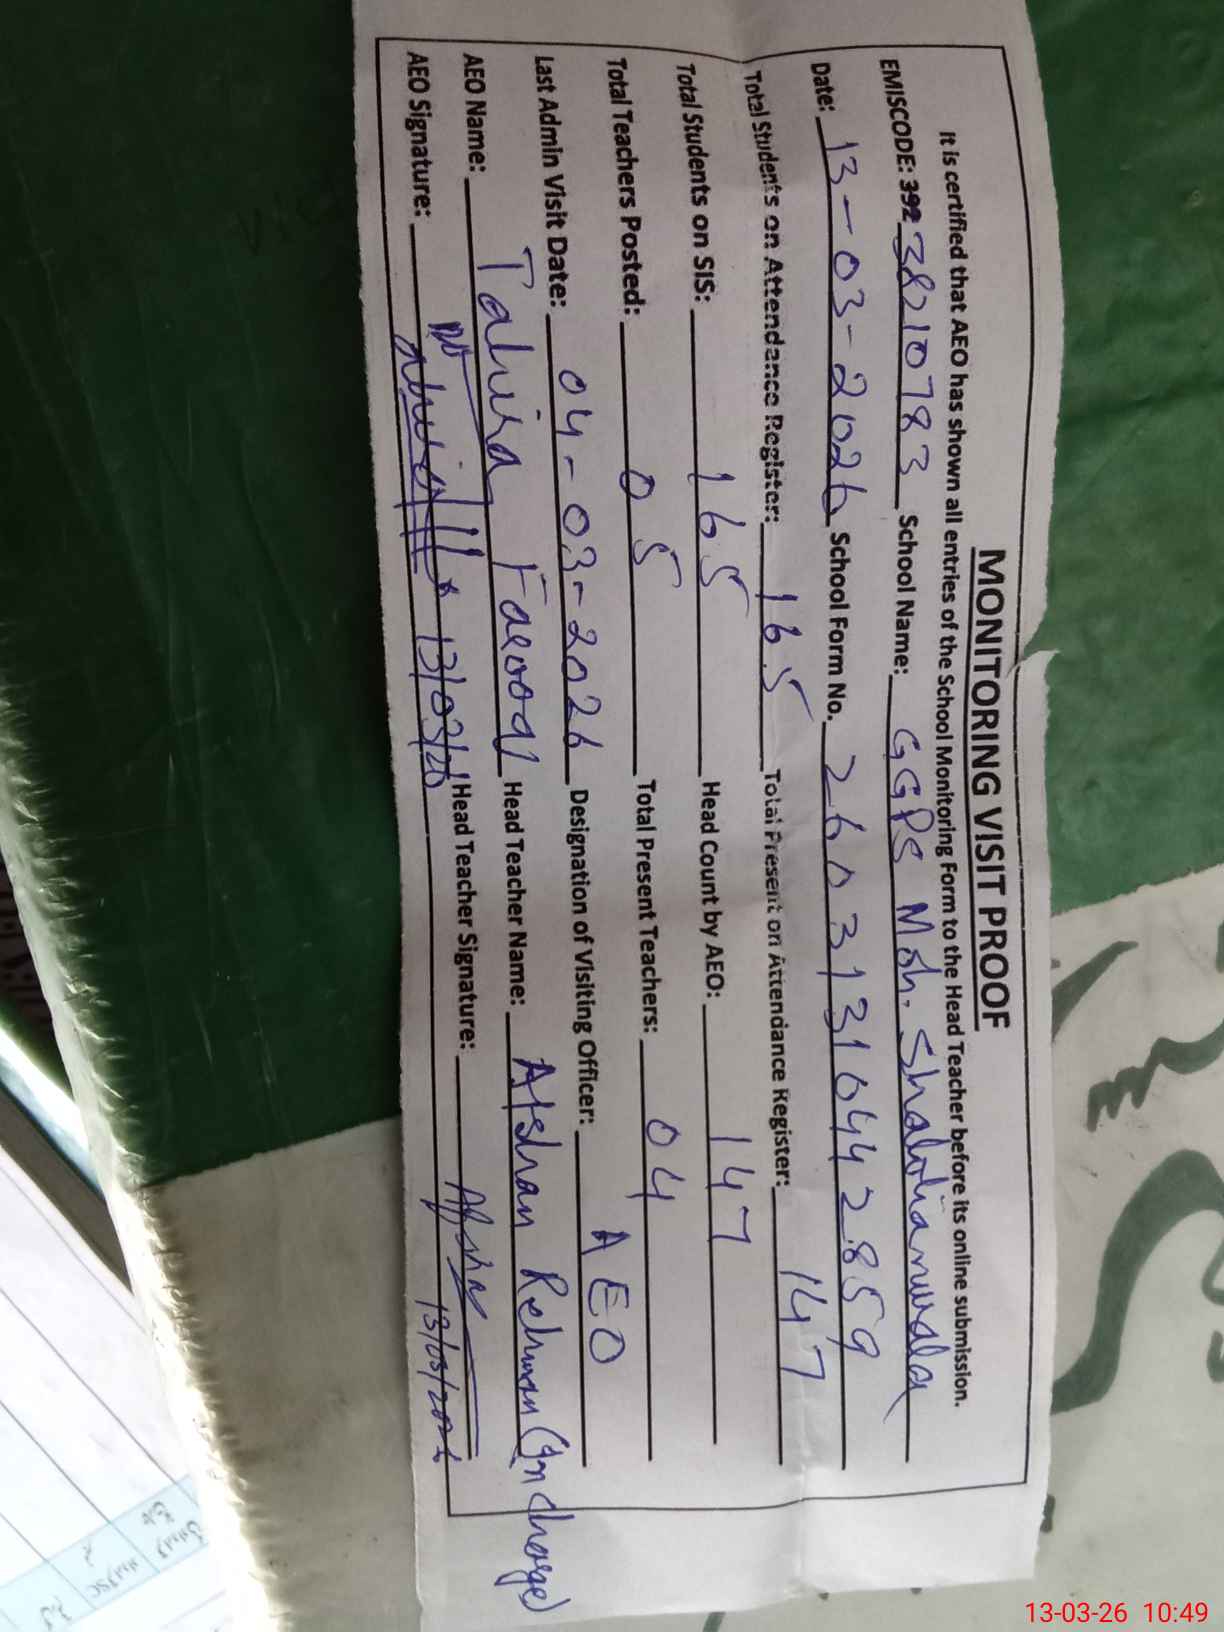 MONITORING VISIT PROOF
It is certified that AEO has shown all entries of the School Monitoring Form to the Head Teacher before its online submission.
EMISCODE: 392 38210783 School Name: GGPS Moh.
Date: 13-03-2026 School Form No. 26031316442859
Total Students on Attendance Register: 165 Total Present on Attendance Register: 147
Total Students on SIS: 165 Head Count by AEO: 147
Total Teachers Posted: 05 Total Present Teachers: 04
Last Admin Visit Date: 04-03-2026 Designation of Visiting Officer: AEO
AEO Name: Tahira Farooq Head Teacher Name: Afshan Rehman (In charge)
AEO Signature: 13/03/20 Head Teacher Signature: 13/03/2026
13-03-26 10:49